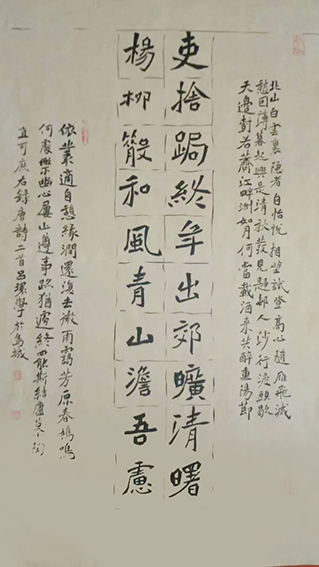 北山白雲裏隱者自怡悅相望試登高心隨雁飛滅
愁因薄暮起興是清秋發見歸邨人沙行渡頭歇
天邊樹若薺江畔洲如月何當載酒來共醉重陽節
吏捨跼終年出郊曠清曙
楊柳散和風青山澹吾慮
依叢適自憩緣澗還復去微雨靄芳原春鳩鳴
何處樂幽心屢止遵事跡猶遽終罷斯結廬慕陶
直可庶右錄唐詩二首呂環學於烏城